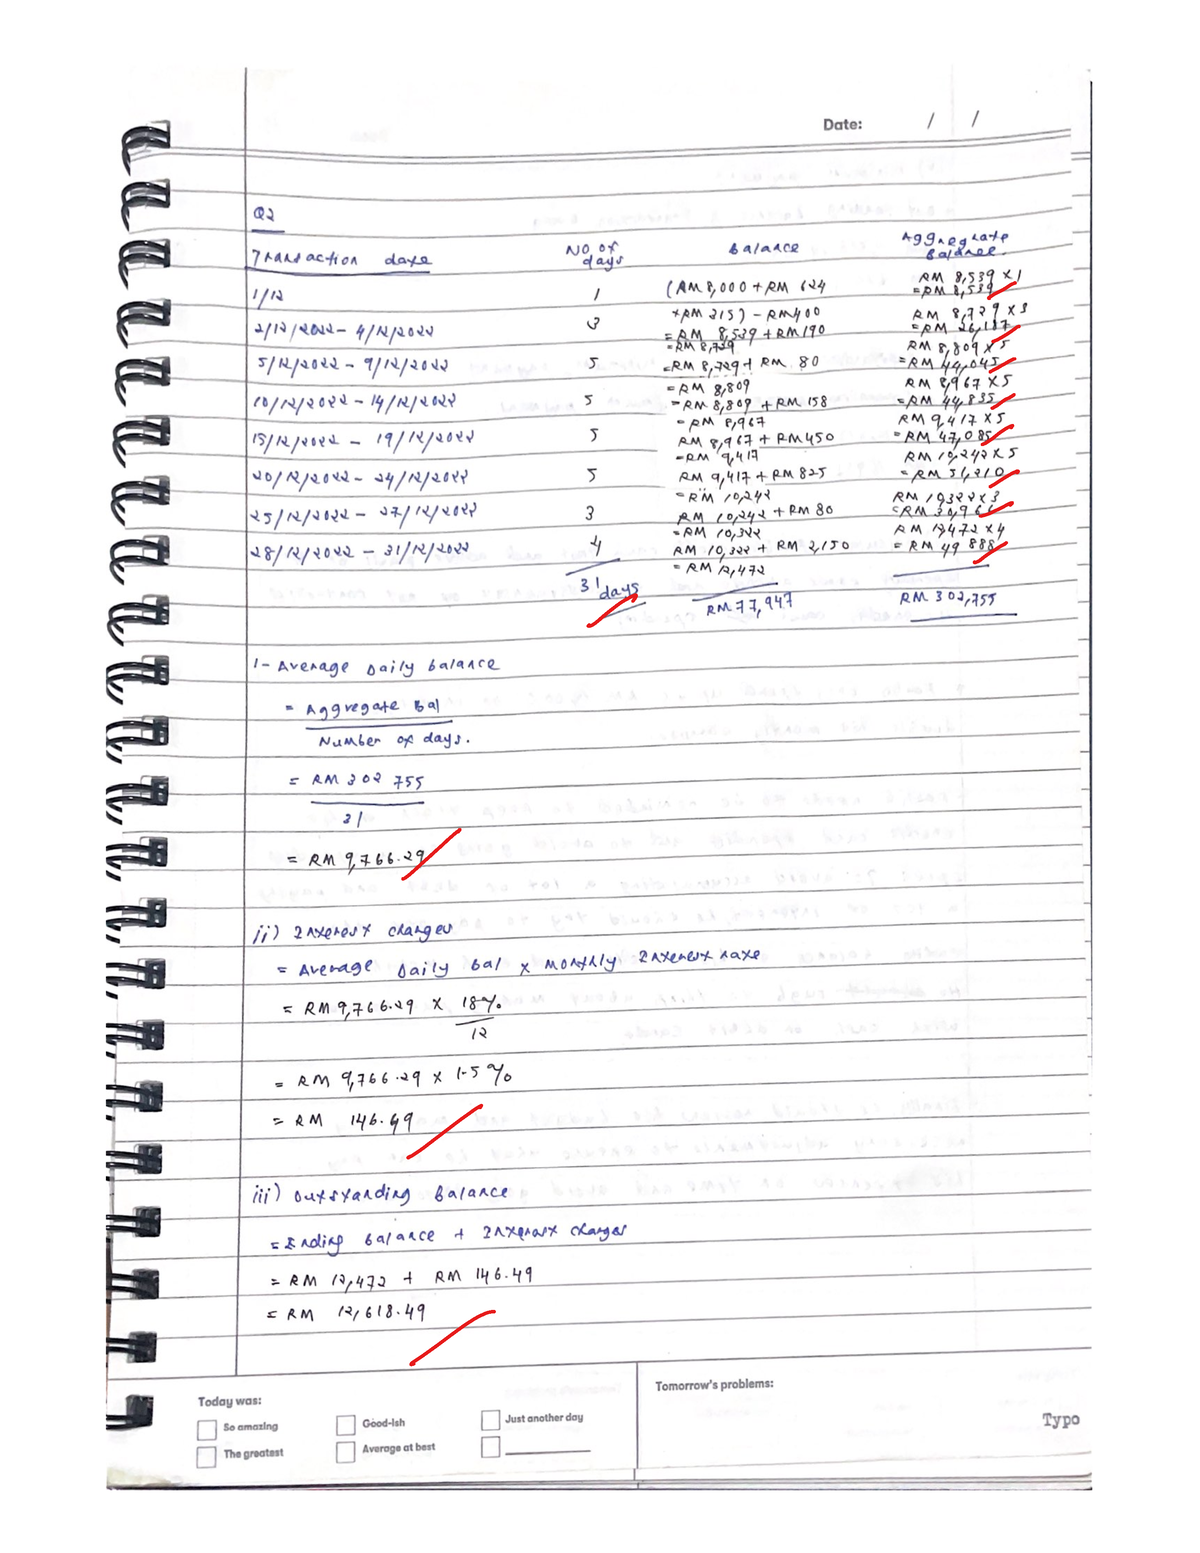 Date: / /
Q2
Transaction date No. of days Balance Aggregate Balance.
1/12 1 (RM 8,000 + RM 624 RM 8,539 × 1
+ RM 315) - RM 400 = RM 8,539
2/12/2022 - 4/12/2022 3 = RM 8,539 + RM 190 RM 8,729 × 3
= RM 8,729 = RM 26,187
5/12/2022 - 9/12/2022 5 = RM 8,729 + RM 80 RM 8,809 × 5
= RM 8,809 = RM 44,045
10/12/2022 - 14/12/2022 5 = RM 8,809 + RM 158 RM 8,967 × 5
= RM 8,967 = RM 44,835
15/12/2022 - 19/12/2022 5 RM 8,967 + RM 450 RM 9,417 × 5
= RM 9,417 = RM 47,085
20/12/2022 - 24/12/2022 5 RM 9,417 + RM 825 RM 10,242 × 5
= RM 10,242 = RM 51,210
25/12/2022 - 27/12/2022 3 RM 10,242 + RM 80 RM 10,322 × 3
= RM 10,322 = RM 30,966
28/12/2022 - 31/12/2022 4 RM 10,322 + RM 2,150 RM 12,472 × 4
= RM 12,472 = RM 49 888
31 days RM 77,947 RM 302,755
1- Average Daily balance
= Aggregate Bal
Number of days.
= RM 302 755
31
= RM 9,766.29
ii) Interest charges
= Average Daily bal × Monthly Interest rate
= RM 9,766.29 × 18%
12
= RM 9,766.29 × 1.5%
= RM 146.49
iii) Outstanding Balance
= Ending balance + Interest charges
= RM 12,472 + RM 146.49
= RM 12,618.49
Today was:
So amazing Good-ish Just another day
The greatest Average at best
Tomorrow's problems:
Typo